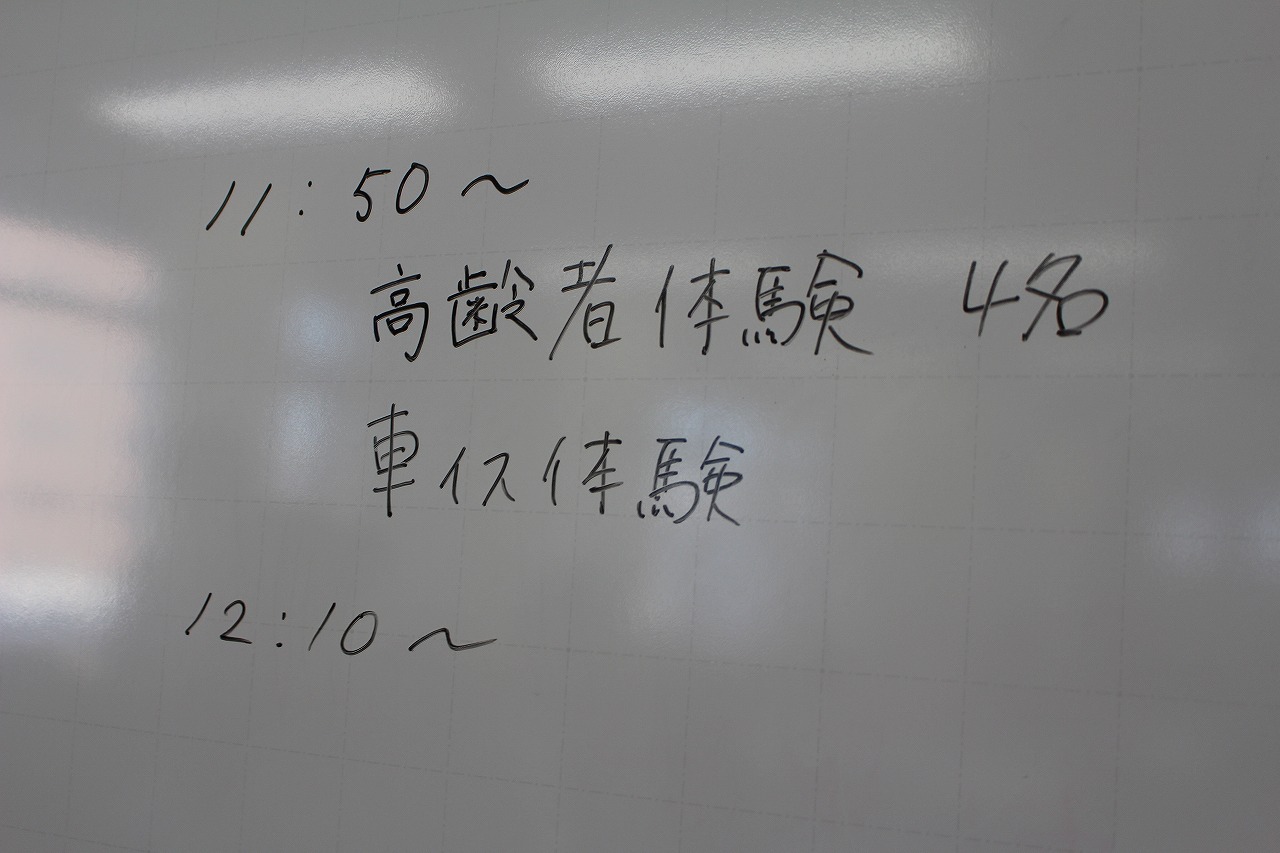 11:50～
高齢者体験 4名
車イス体験
12:10～